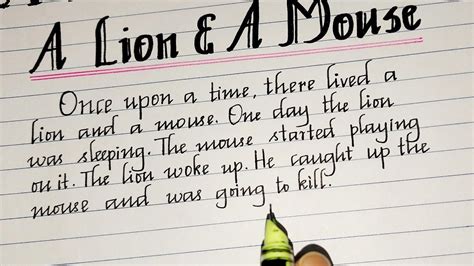 A Lion & A Mouse
Once upon a time, there lived a
lion and a mouse. One day the lion
was sleeping. The mouse started playing
on it. The lion woke up. He caught up the
mouse and was going to kill.